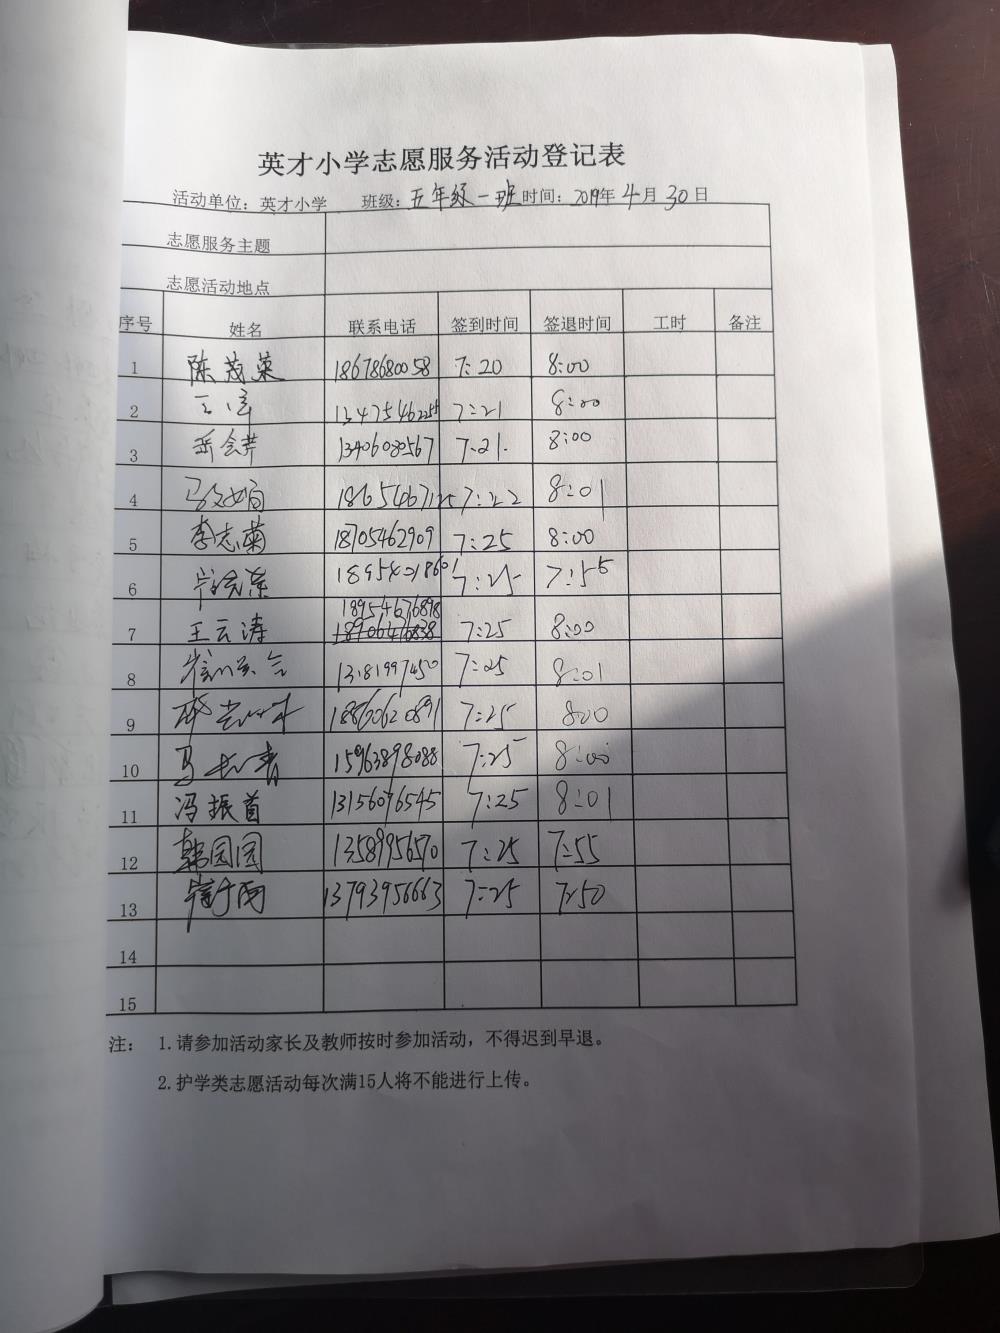 英才小学志愿服务活动登记表
活动单位：英才小学 班级：五年级一班 时间：2019年4月30日
志愿服务主题
志愿活动地点
序号 姓名 联系电话 签到时间 签退时间 工时 备注
1 陈茂英 18678680058 7:20 8:00
2 13475462255 7:21 8:00
3 13406080567 7:21. 8:00
4 7:22 8:01
5 李志菊 18705462909 7:25 8:00
6 7:25 7:55
18954676898
7 王云涛 18906476838 7:25 8:00
8 13.81997450 7:25 8:01
9 18860620891 7:25 8:00
10 马长青 15963898088 7:25 8:00
11 冯振首 13156076545 7:25 8:01
12 韩园园 13589956570 7:25 7:55
13 13793956663 7:25 7:50
14
15
注： 1.请参加活动家长及教师按时参加活动，不得迟到早退。
2.护学类志愿活动每次满15人将不能进行上传。